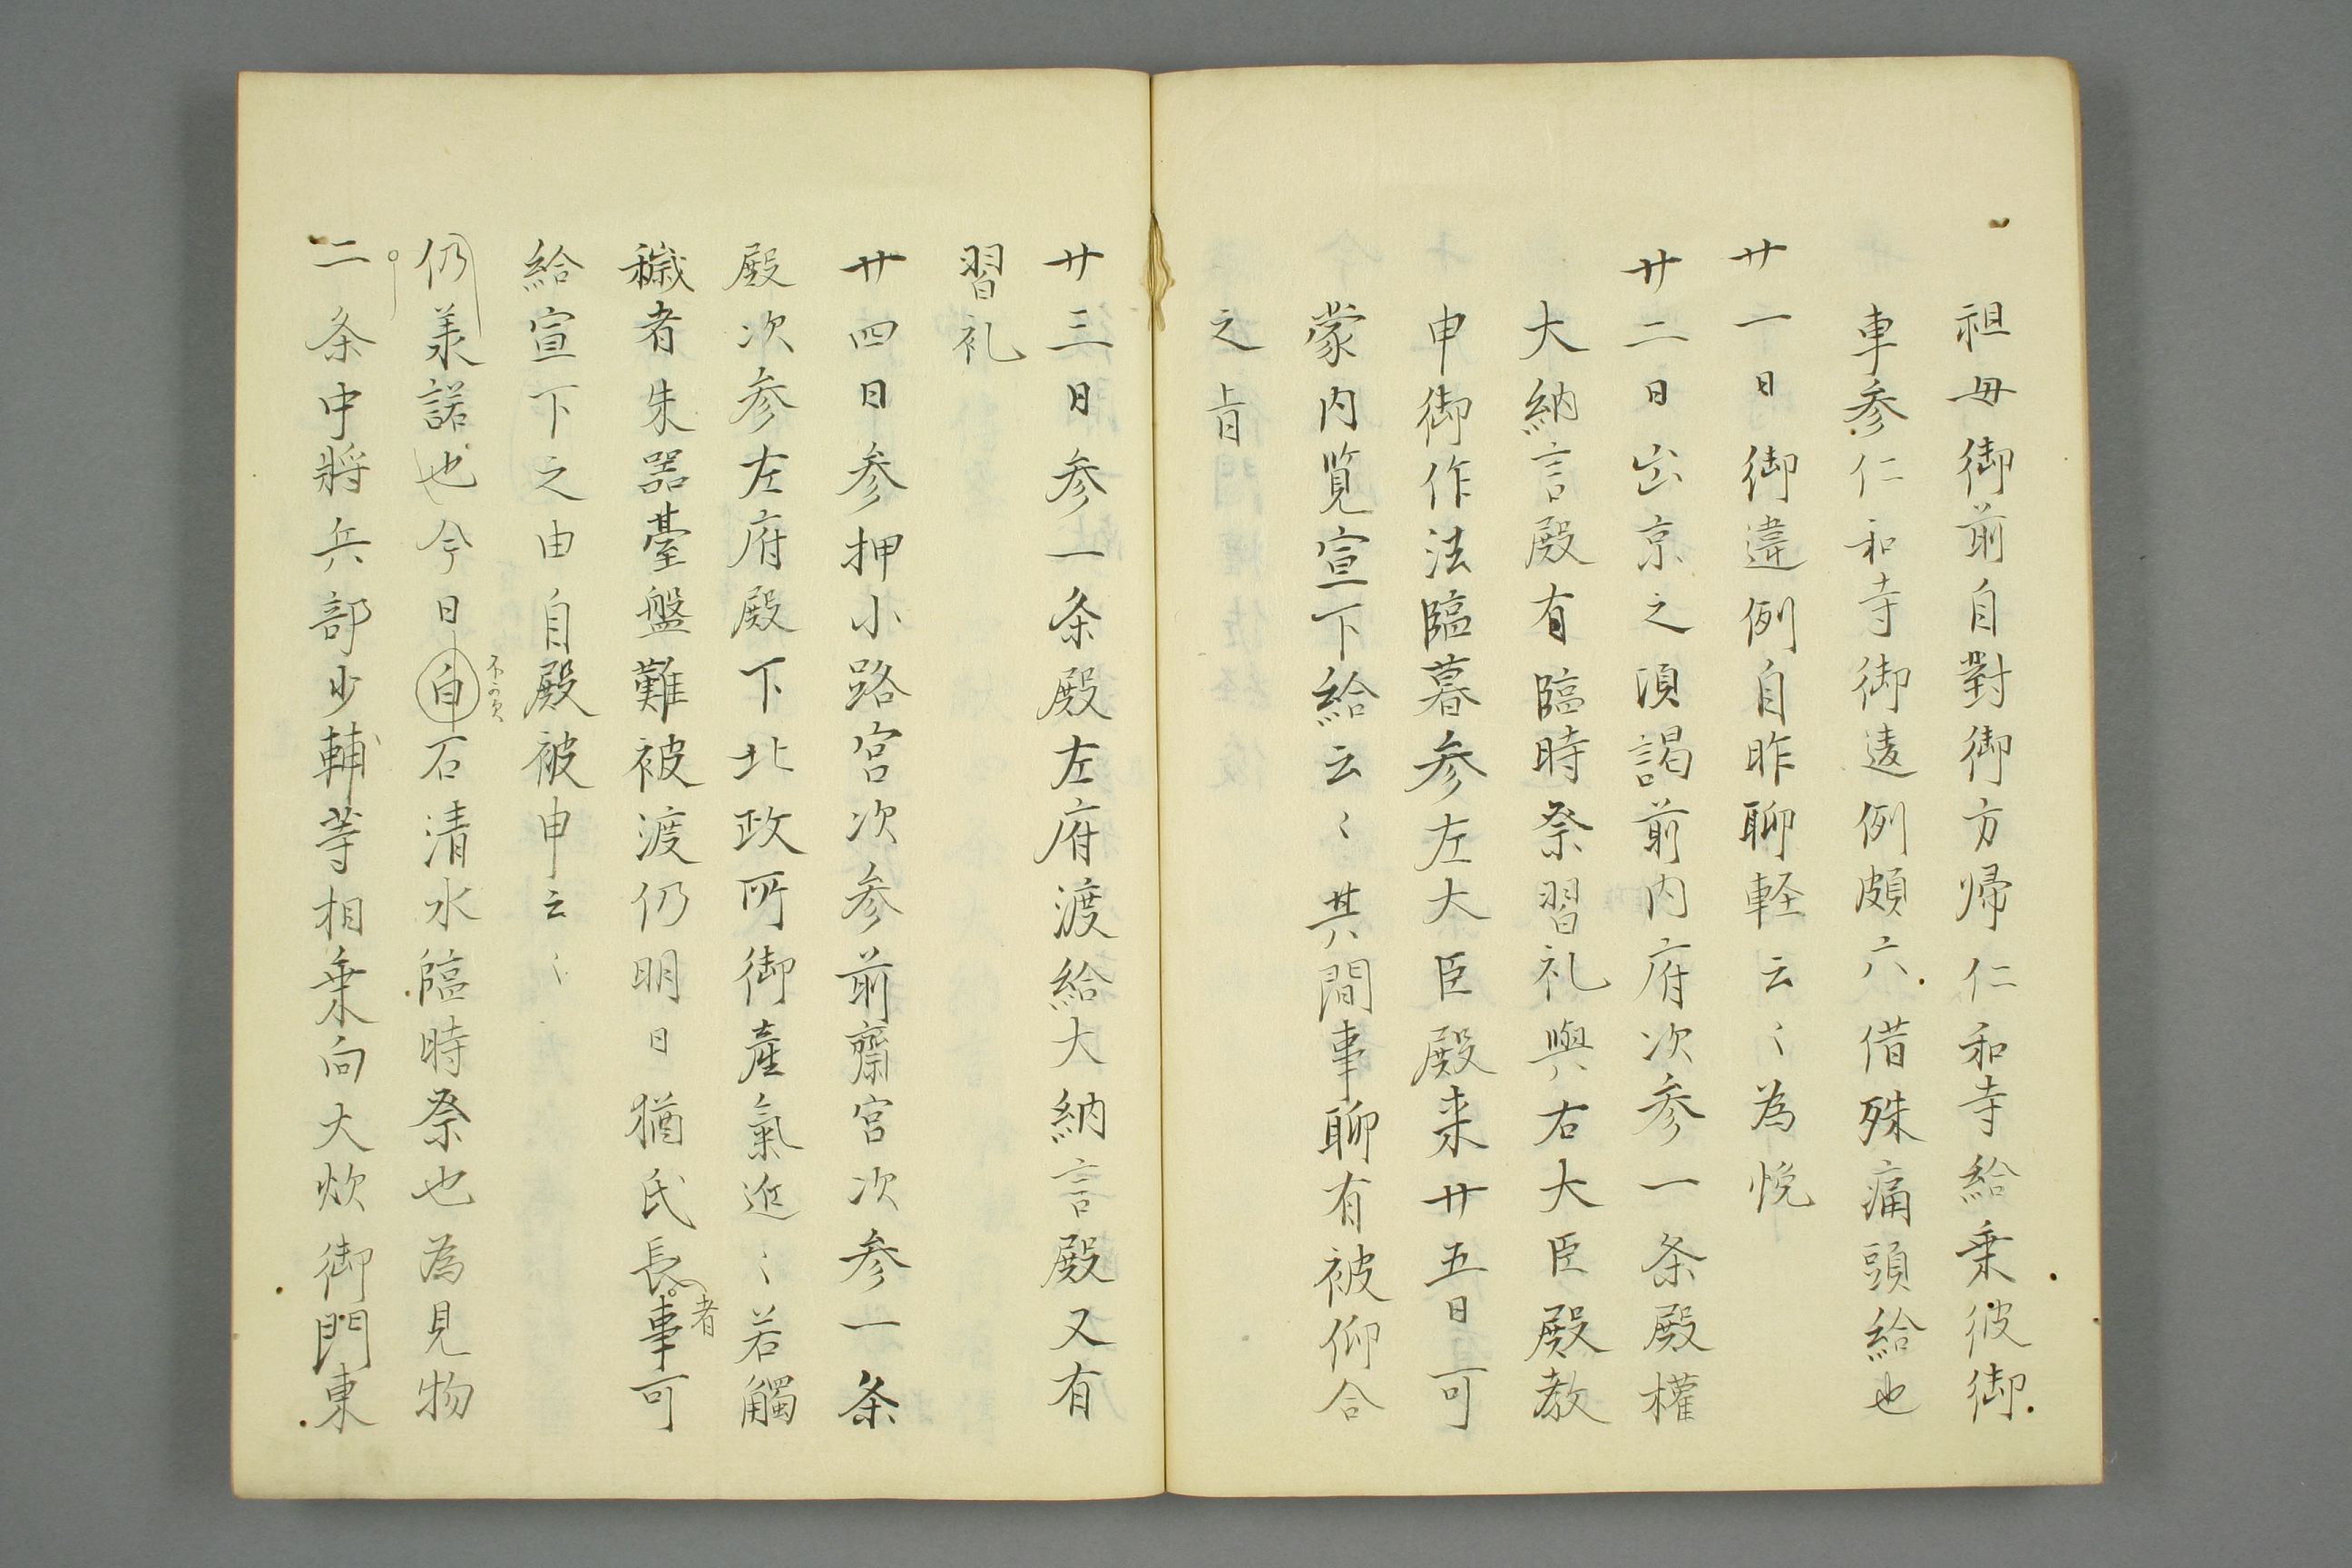 祖母御前自對御方帰仁和寺給乗彼御
車参仁和寺御違例頗六借殊痛頭給也
廿一日御違例自昨聊軽云〻為悦
廿二日出京之須謁前内府次参一条殿權
大納言殿有臨時祭習礼與右大臣殿教
申御作法臨暮参左大臣殿来廿五日可
蒙内覧宣下給云〻其間事聊有被仰合
之旨
廿三日参一条殿左府渡給大納言殿又有
習礼
廿四日参押小路宮次参前齋宮次参一条
殿次参左府殿下北政所御産氣近〻若觸
穢者朱器臺盤難被渡仍明日猶氏長者事可
給宣下之由自殿被申云〻
仍羕諾也今日自石清水臨時祭也為見物
二条中將兵部少輔等相乗向大炊御門東